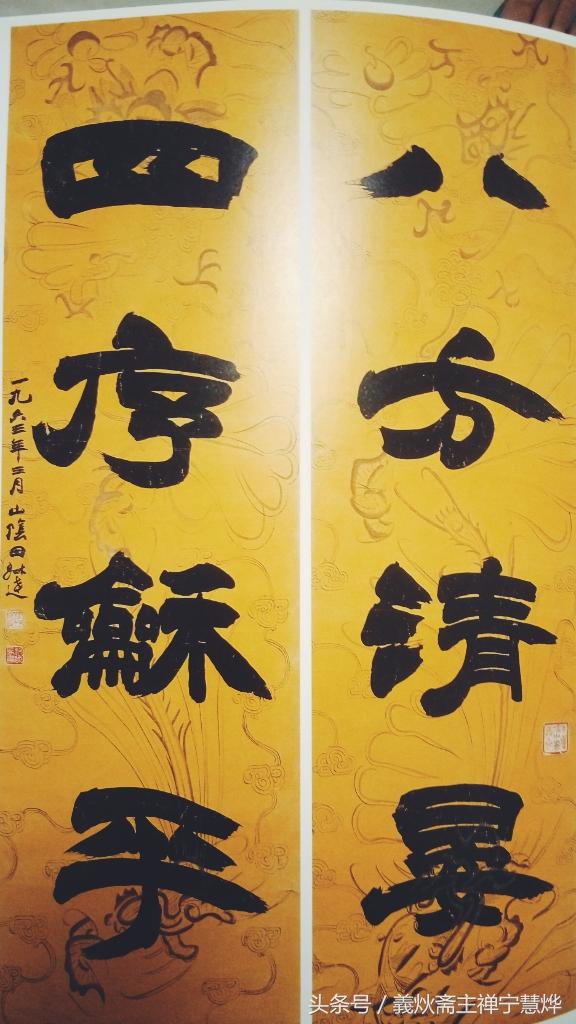 八方清晏
四序龢平
一九六三年三月山陰田叔達
头条号 / 義炏斋主禅宁慧烨